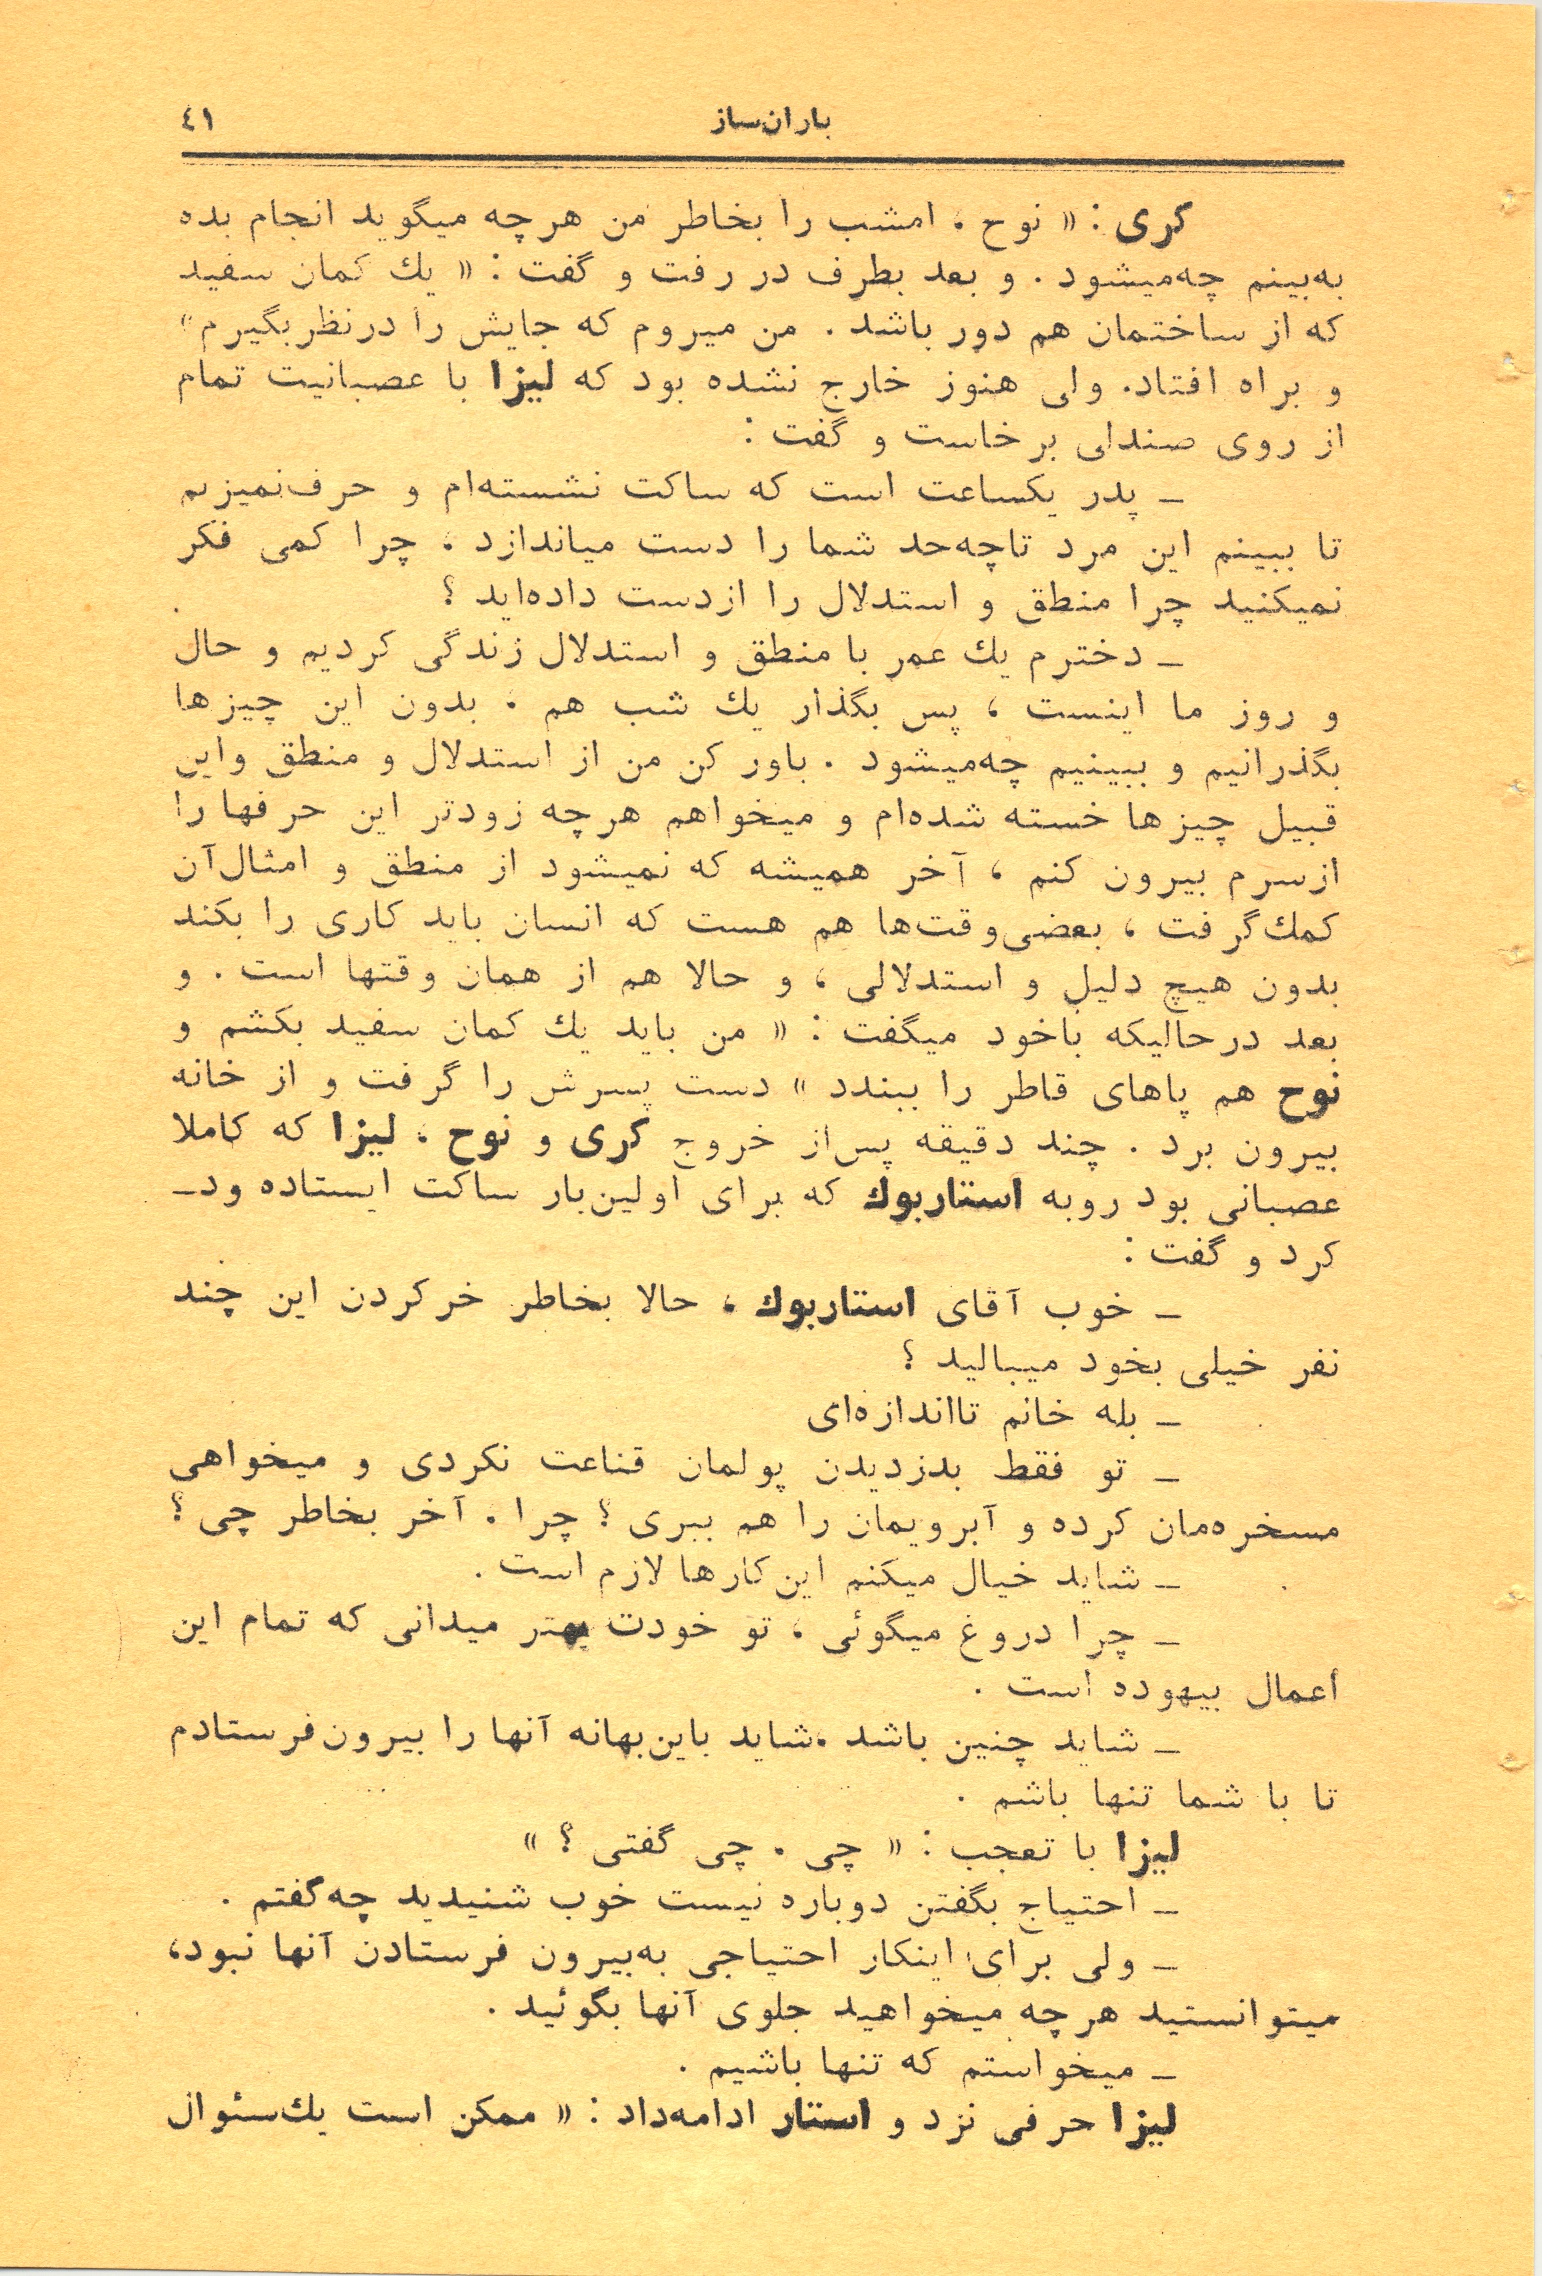 باران‌ساز ٤١
کری : « نوح ، امشب را بخاطر من هرچه میگوید انجام بده
به‌بینم چه‌میشود . و بعد بطرف در رفت و گفت : « یك کمان سفید
که از ساختمان هم دور باشد . من میروم که جایش را درنظر بگیرم »
و براه افتاد. ولی هنوز خارج نشده بود که لیزا با عصبانیت تمام
از روی صندلی برخاست و گفت :
ــ پدر یکساعت است که ساکت نشسته‌ام و حرف‌نمیزنم
تا ببینم این مرد تاچه‌حد شما را دست میاندازد ، چرا کمی فکر
نمیکنید چرا منطق و استدلال را ازدست داده‌اید ؟
ــ دخترم یك عمر با منطق و استدلال زندگی کردیم و حال
و روز ما اینست ، پس بگذار یك شب هم ، بدون این چیزها
بگذرانیم و ببینیم چه‌میشود . باور کن من از استدلال و منطق واین
قبیل چیزها خسته شده‌ام و میخواهم هرچه زودتر این حرفها را
ازسرم بیرون کنم ، آخر همیشه که نمیشود از منطق و امثال‌آن
کمك‌گرفت ، بعضی‌وقت‌ها هم هست که انسان باید کاری را بکند
بدون هیچ دلیل و استدلالی ، و حالا هم از همان وقتها است . و
بعد درحالیکه باخود میگفت : « من باید یك کمان سفید بکشم و
نوح هم پاهای قاطر را ببندد » دست پسرش را گرفت و از خانه
بیرون برد . چند دقیقه پس‌از خروج کری و نوح ، لیزا که کاملا
عصبانی بود روبه استاربوك که برای اولین‌بار ساکت ایستاده ودــ
کرد و گفت :
ــ خوب آقای استاربوك ، حالا بخاطر خرکردن این چند
نفر خیلی بخود میبالید ؟
ــ بله خانم تااندازه‌ای
ــ تو فقط بدزدیدن پولمان قناعت نکردی و میخواهی
مسخره‌مان کرده و آبرویمان را هم ببری ؟ چرا . آخر بخاطر چی ؟
ــ شاید خیال میکنم این‌کارها لازم است .
ــ چرا دروغ میگوئی ، تو خودت بهتر میدانی که تمام این
اعمال بیهوده است .
ــ شاید چنین باشد .شاید باین‌بهانه آنها را بیرون‌فرستادم
تا با شما تنها باشم .
لیزا با تعجب : « چی . چی گفتی ؟ »
ــ احتیاج بگفتن دوباره نیست خوب شنیدید چه‌گفتم .
ــ ولی برای اینکار احتیاجی به‌بیرون فرستادن آنها نبود،
میتوانستید هرچه میخواهید جلوی آنها بگوئید .
ــ میخواستم که تنها باشیم .
لیزا حرفی نزد و استار ادامه‌داد : « ممکن است یك‌سئوال